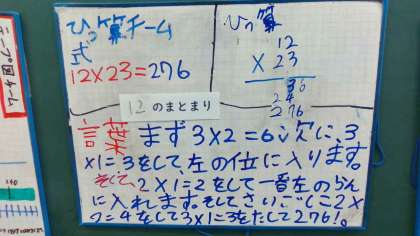 ひっ算チーム
式
12×23=276
ひっ算
12
×23
36
24
276
12のまとまり
言葉 まず3×2=6、次に、3
×1=3をして、左の位に入ります。
そして、2×1=2をして一音左のらん
に入れます。そしてさいごに2×
2=4をして3×1=3をたして276!。